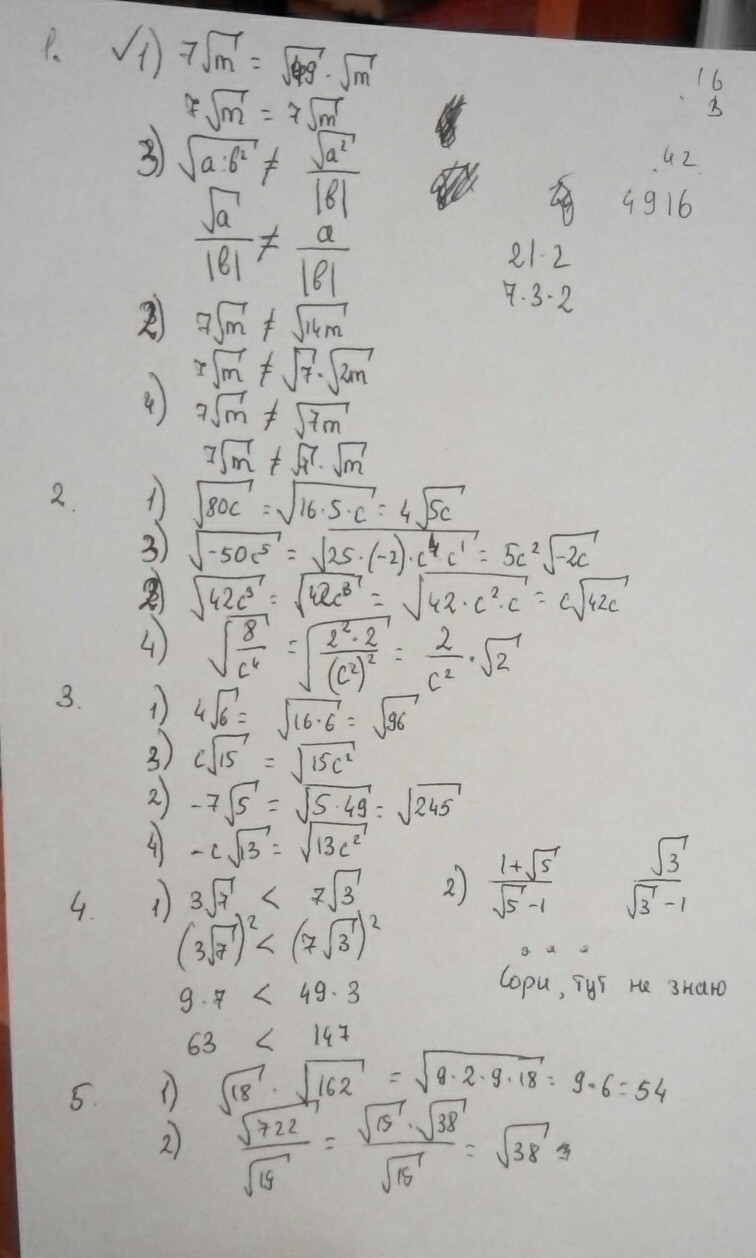 1. ✓1) 7√m = √49 · √m
7√m = 7√m
3) √(a:b²) ≠ √(a²)/|b|
√a/|b| ≠ a/|b|
2) 7√m ≠ √(14m)
7√m ≠ √7 · √(2m)
4) 7√m ≠ √(7m)
7√m ≠ √7 · √m
16
3
42
4916
21·2
7·3·2
2. 1) √(80c) = √(16·5·c) = 4√(5c)
3) √(-50c⁵) = √(25·(-2)·c⁴·c¹) = 5c²√(-2c)
2) √(42c³) = √(42c³) = √(42·c²·c) = c√(42c)
4) √(8/c⁴) = √(2²·2/(c²)²) = 2/c² · √2
3. 1) 4√6 = √(16·6) = √96
3) c√15 = √(15c²)
2) -7√5 = √(5·49) = √245
4) -c√13 = √(13c²)
4. 1) 3√7 < 7√3
(3√7)² < (7√3)²
9·7 < 49·3
63 < 147
2) (1+√5)/(√5-1) √3/(√3-1)
Сори, тут не знаю
5. 1) √18 · √162 = √(9·2·9·18) = 9·6 = 54
2) √722/√19 = √19·√38/√19 = √38